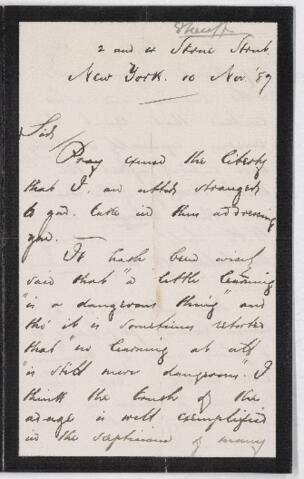 2 and 4 Stone Street.
New York. 10 Nov. '87
Sir,
Pray excuse the liberty
that I, an utter stranger
to you. take in thus addressing
you. —
It hath been wisely
said that "a little learning
"is a dangerous thing" and
tho' it is sometimes retorted
that "no learning at all
"is still more dangerous." I
think the truth of the
adage is well exemplified
in the scepticism of many